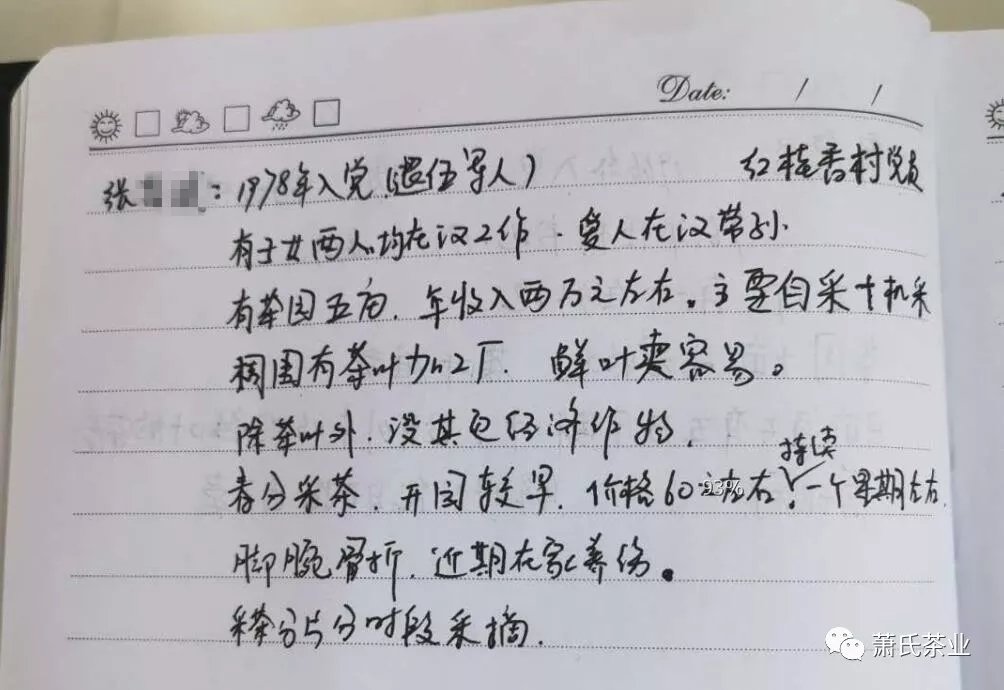 Date: / /
张 : 1978年入党(退伍军人) 红桂香村党员
有子女两人均在汉工作. 爱人在汉带孙.
有茶园五亩. 年收入两万元左右。主要自采+机采
周围有茶叶加工厂. 鲜叶卖容易。
除茶叶外. 没其它经济作物.
持续
春分采茶. 开园较早. 价格60元左右. 一个星期左右.
93%
脚腕骨折. 近期在家养伤。
采茶分片分时段采摘.
萧氏茶业